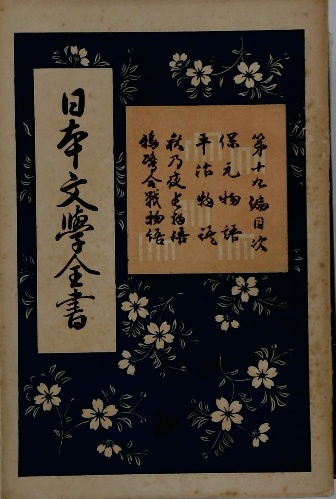 日本文學全書
第十九編目次
保元物語
平治物語
秋乃夜長物語
鴉鷺合戰物語